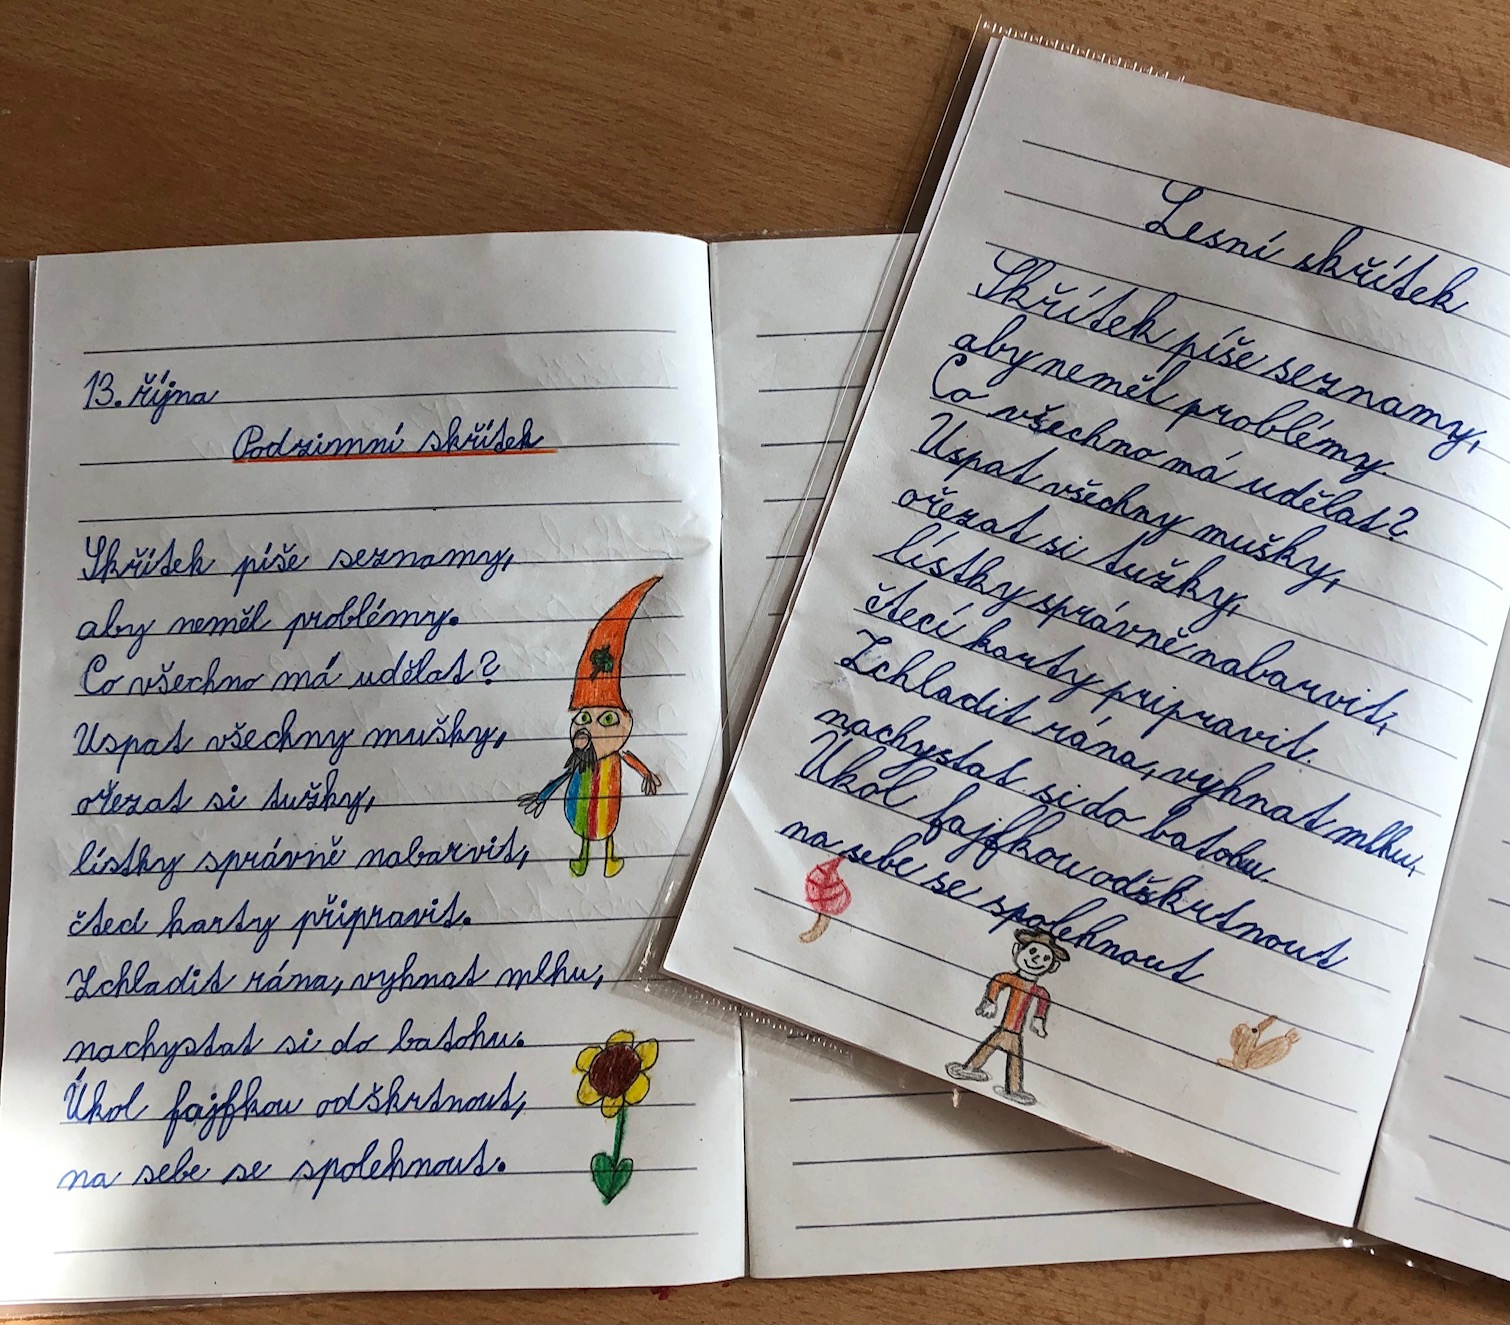 13. října
Podzimní skřítek
Skřítek píše seznamy,
aby neměl problémy.
Co všechno má udělat?
Uspat všechny mušky,
ořezat si tužky,
lístky správně nabarvit,
čtecí karty připravit.
Zchladit rána, vyhnat mlhu,
nachystat si do batohu.
Úkol fajfkou odškrtnout,
na sebe se spolehnout.
Lesní skřítek
Skřítek píše seznamy,
aby neměl problémy
Co všechno má udělat?
Uspat všechny mušky,
ořezat si tužky,
lístky správně nabarvit,
čtecí karty pripravit.
Zchladit rána, vyhnat mlhu,
nachystat si do batohu.
Úkol fajfkou odškrtnout
na sebe se spolehnout